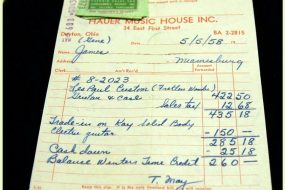 HAUER MUSIC HOUSE INC.
34 East First Street
Dayton, Ohio
BA 2-2815
(Gene)
5/5/58
James
Miamisburg
# 8-2023
Les Paul Custom (Fretless Wonder)
& Case 422 50
Sales tax 12 68
435 18
Trade-in on Kay Solid Body
Electric guitar -150 —
285 18
Cash down - 25 18
Balance Wanters Time Credit 260 —
T. May